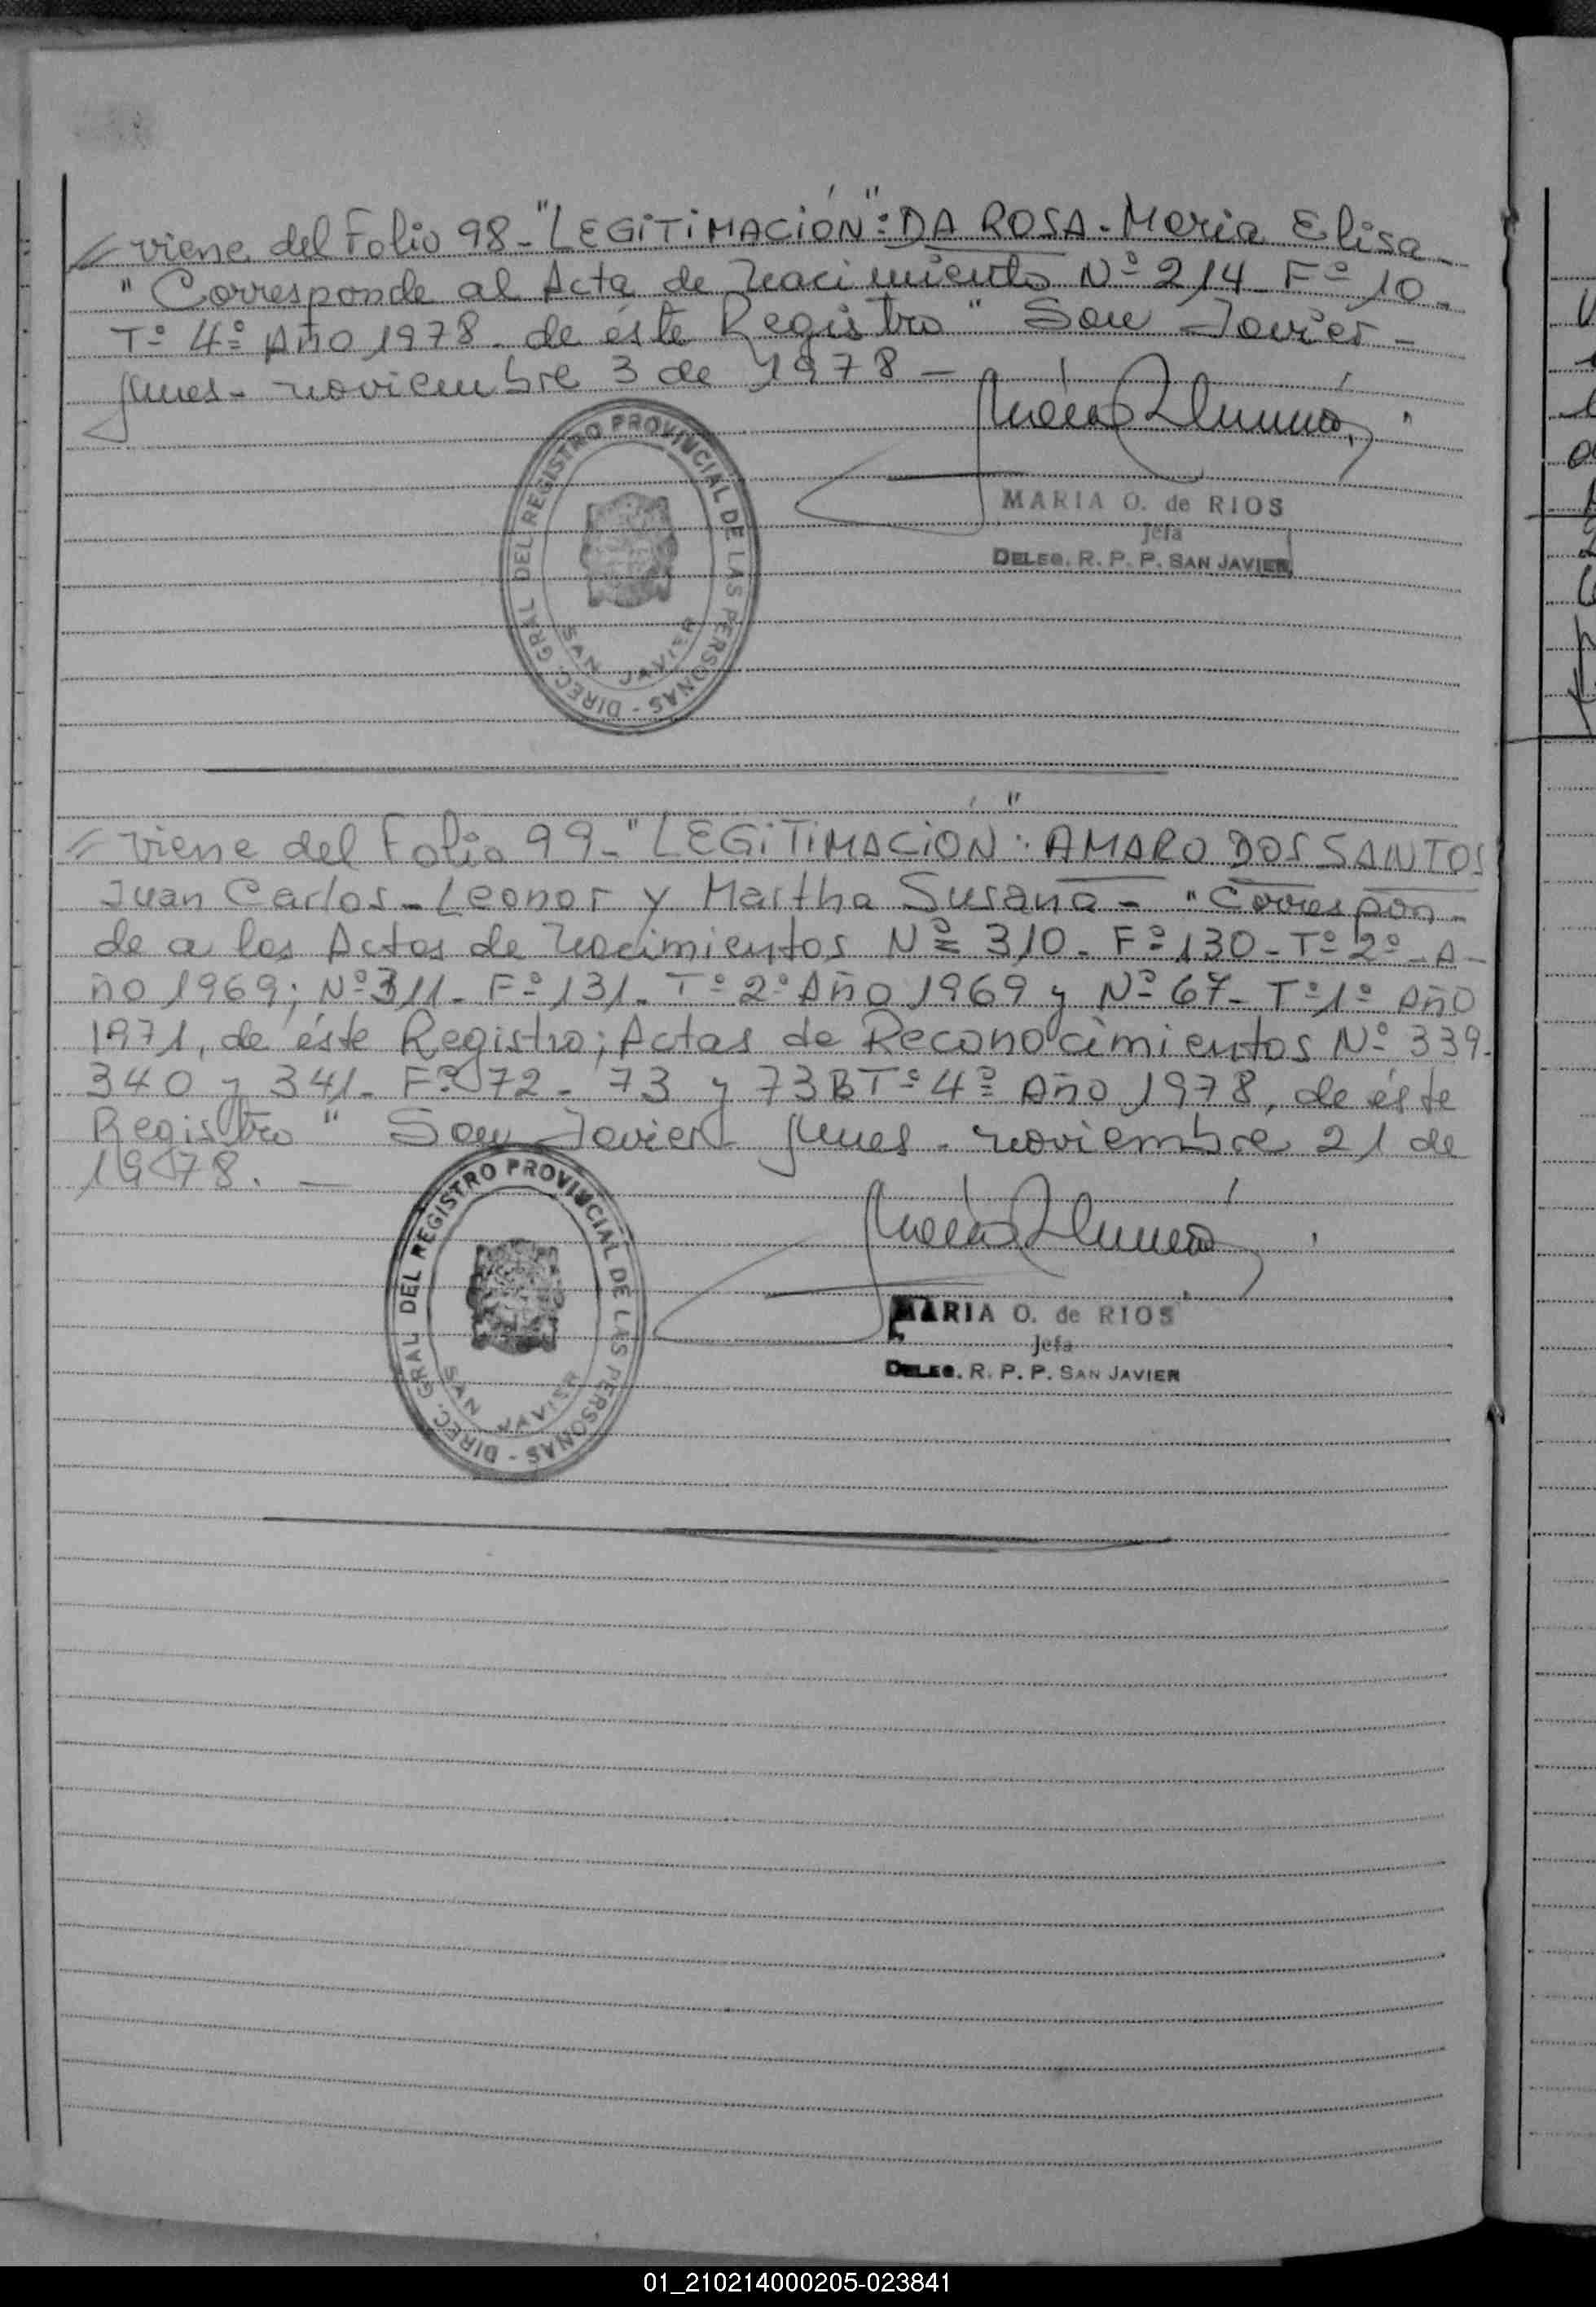 // viene del Folio 98- "LEGITIMACIÓN": DA ROSA- Maria Elisa-
" Corresponde al Acta de Nacimiento Nº 214- Fº 10-
Tº 4º Año 1978- de éste Registro" San Javier-
Mnes- noviembre 3 de 1978-
MARIA O. de RIOS
Jefa
DELEG. R. P. P. SAN JAVIER
DIREC. GRAL DEL REGISTRO PROVINCIAL DE LAS PERSONAS -
SAN JAVIER
// viene del Folio 99- "LEGITIMACIÓN": AMARO DOS SANTOS
Juan Carlos- Leonor y Martha Susana- "Correspon-
de a las Actas de Nacimientos Nº 310- Fº 130- Tº 2º- A-
ño 1969; Nº 311- Fº 131- Tº 2º Año 1969 y Nº 67- Tº 1º Año
1971, de éste Registro; Actas de Reconocimientos Nº 339-
340 y 341- Fº 72- 73 y 73B Tº 4º Año 1978, de éste
Registro" San Javier Mnes- noviembre 21 de
1978. -
DIREC. GRAL DEL REGISTRO PROVINCIAL DE LAS PERSONAS -
SAN JAVIER
MARIA O. de RIOS
Jefa
DELEG. R. P. P. SAN JAVIER
01_210214000205-023841